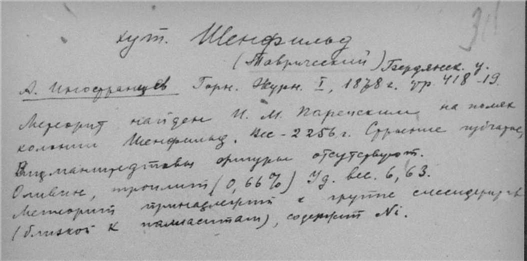 хут. Шенфильд
(Таврический) Бердянск. у.
А. Иностранцев Горн. Журн. I, 1878 г. стр 418-19
Метеорит найден И. М. на полях
колонии Шенфильд. Вес - 2256 г. Строение губчатое,
Видманштедтовы фигуры отсутствуют.
Оливин, троилит (0,66%) Уд. вес. 6,63.
Метеорит принадлежит к группе
(близкой к палласитам), содержит Ni.